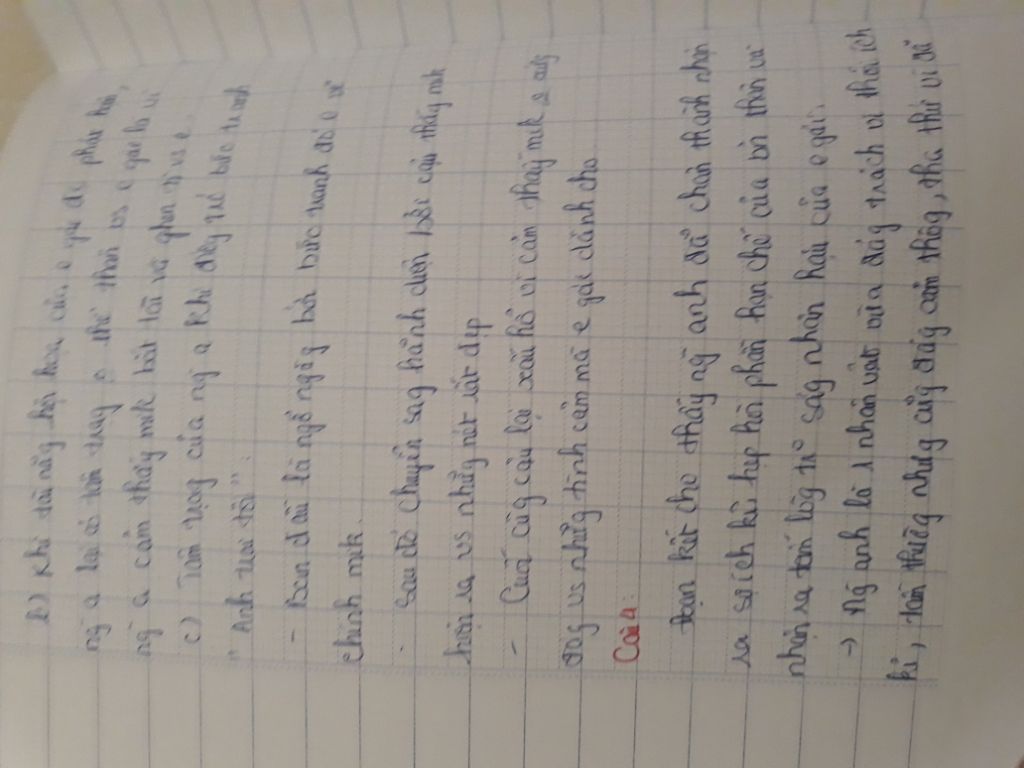 b) Khi tài năng hội họa của e gái đc phát hiện,
ng a lại có tâm trạg o thể thân vs e gái bởi vì
ng a cảm thấy mik bất tài và ghen tị vs e.
c) Tâm trạg của ng a khi đứg trc bức tranh
"Anh trai tôi":
- Ban đầu là ngỡ ngàg bởi bức tranh đó e vẽ
chính mik.
- Sau đó chuyển sag hãnh diện bởi cậu thấy mik
hiện ra vs nhữg nét rất đẹp
- Cuối cùg cậu lại xấu hổ vì cảm thấy mik o xứg
đág vs nhữg tình cảm mà e gái dành cho.
Câu 4:
Đoạn kết cho thấy ng anh đã chân thành nhận
ra sự ích kỉ hẹp hòi phần hạn chế của bản thân và
nhận ra tấm lòg tr ság nhân hậu của e gái.
→ Ng anh là 1 nhân vật vừa đág trách vì thói ích
kỉ, tầm thườg nhưg cũg đág cảm thôg, tha thứ vì đã